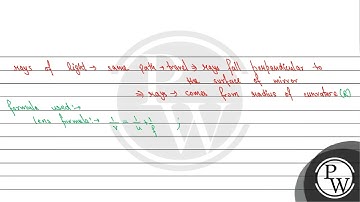 rays of light → same path → travel ⇒ rays fall perpendicular to
the surface of mirror
⇒ rays → comes from radius of curvature (R)
formula used:→
lens formula:→ 1/v = 1/u + 1/f ;
PW
PW